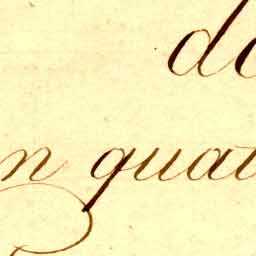 do
n quat